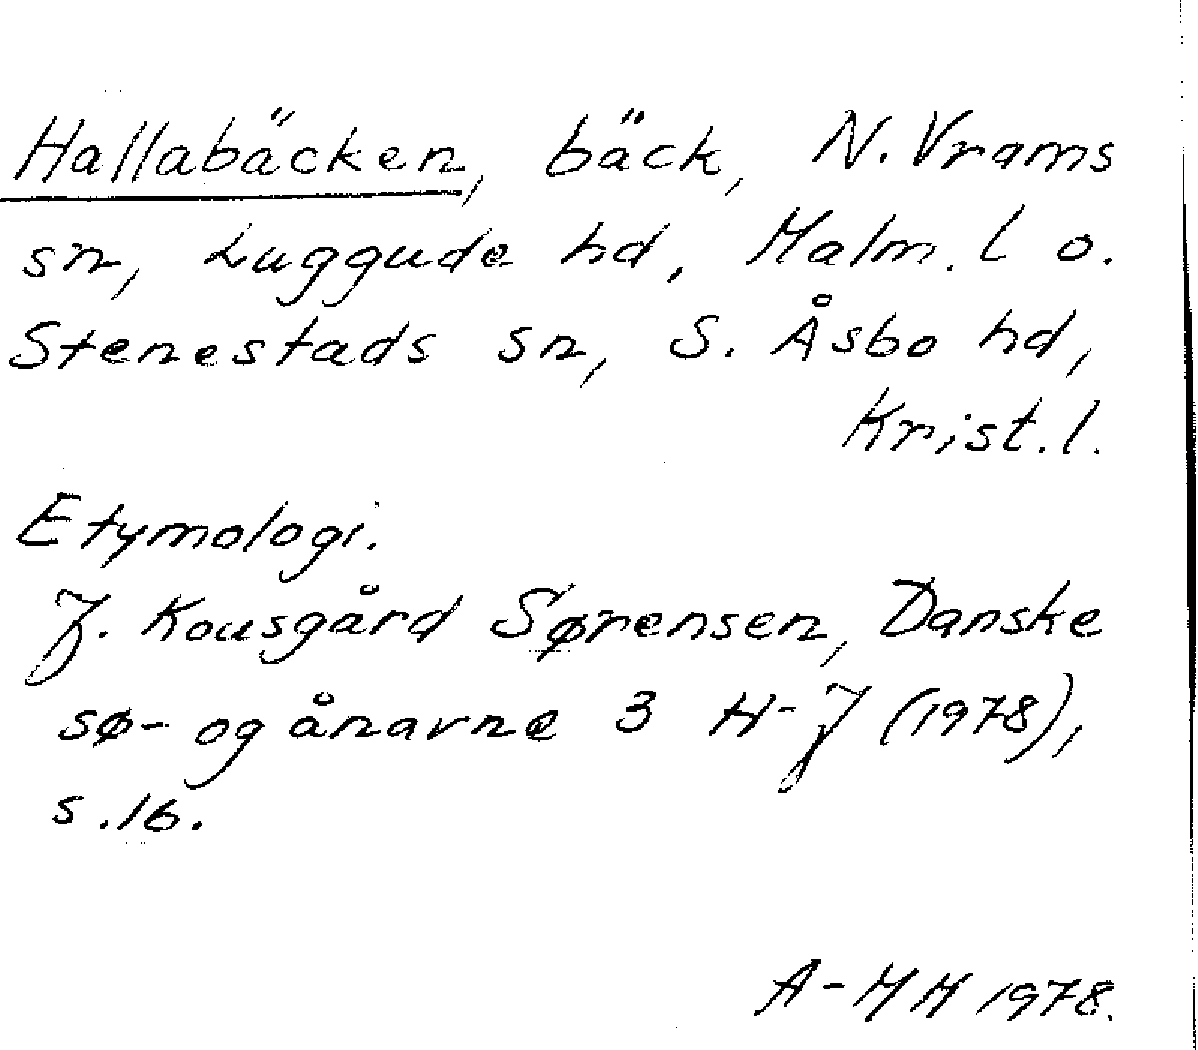 Hallabäcken, bäck, N. Vrams
sn, Luggude hd, Malm. l o.
Stenestads sn, S. Åsbo hd,
Krist. l.
Etymologi.
J. Kousgård Sørensen, Danske
sø- og ånavne 3 H-J (1978),
s. 16.
A-MM 1978.